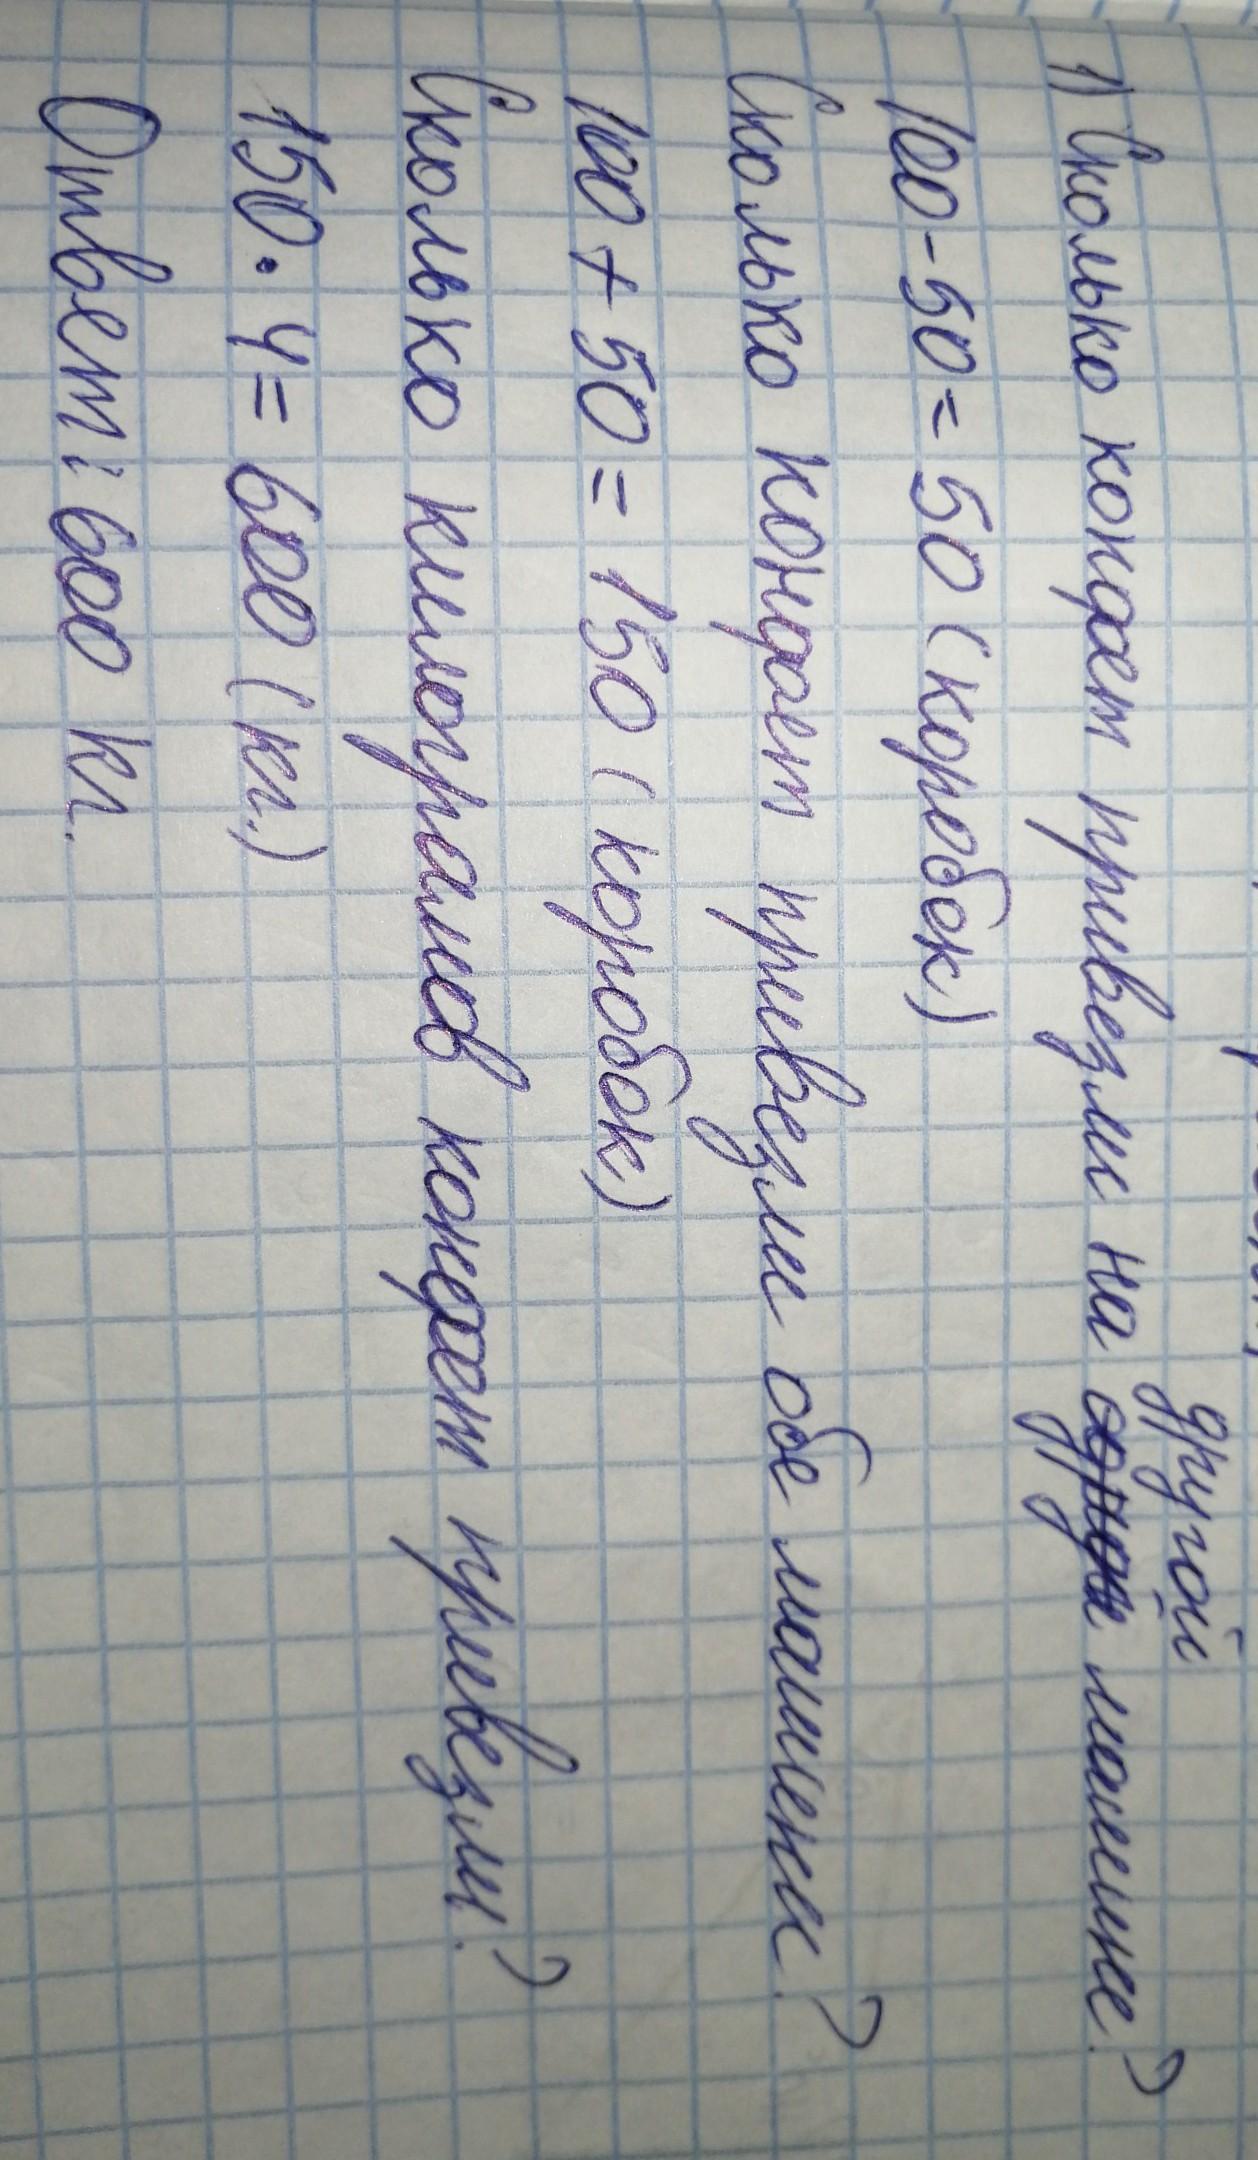 1) Сколько конфет привезли на другой машине?
100-50=50 (коробок)
Сколько конфет привезли обе машини?
100+50=150 (коробок)
Сколько килограмов конфет привезли?
150·4=600 (кг.)
Ответ: 600 кг.